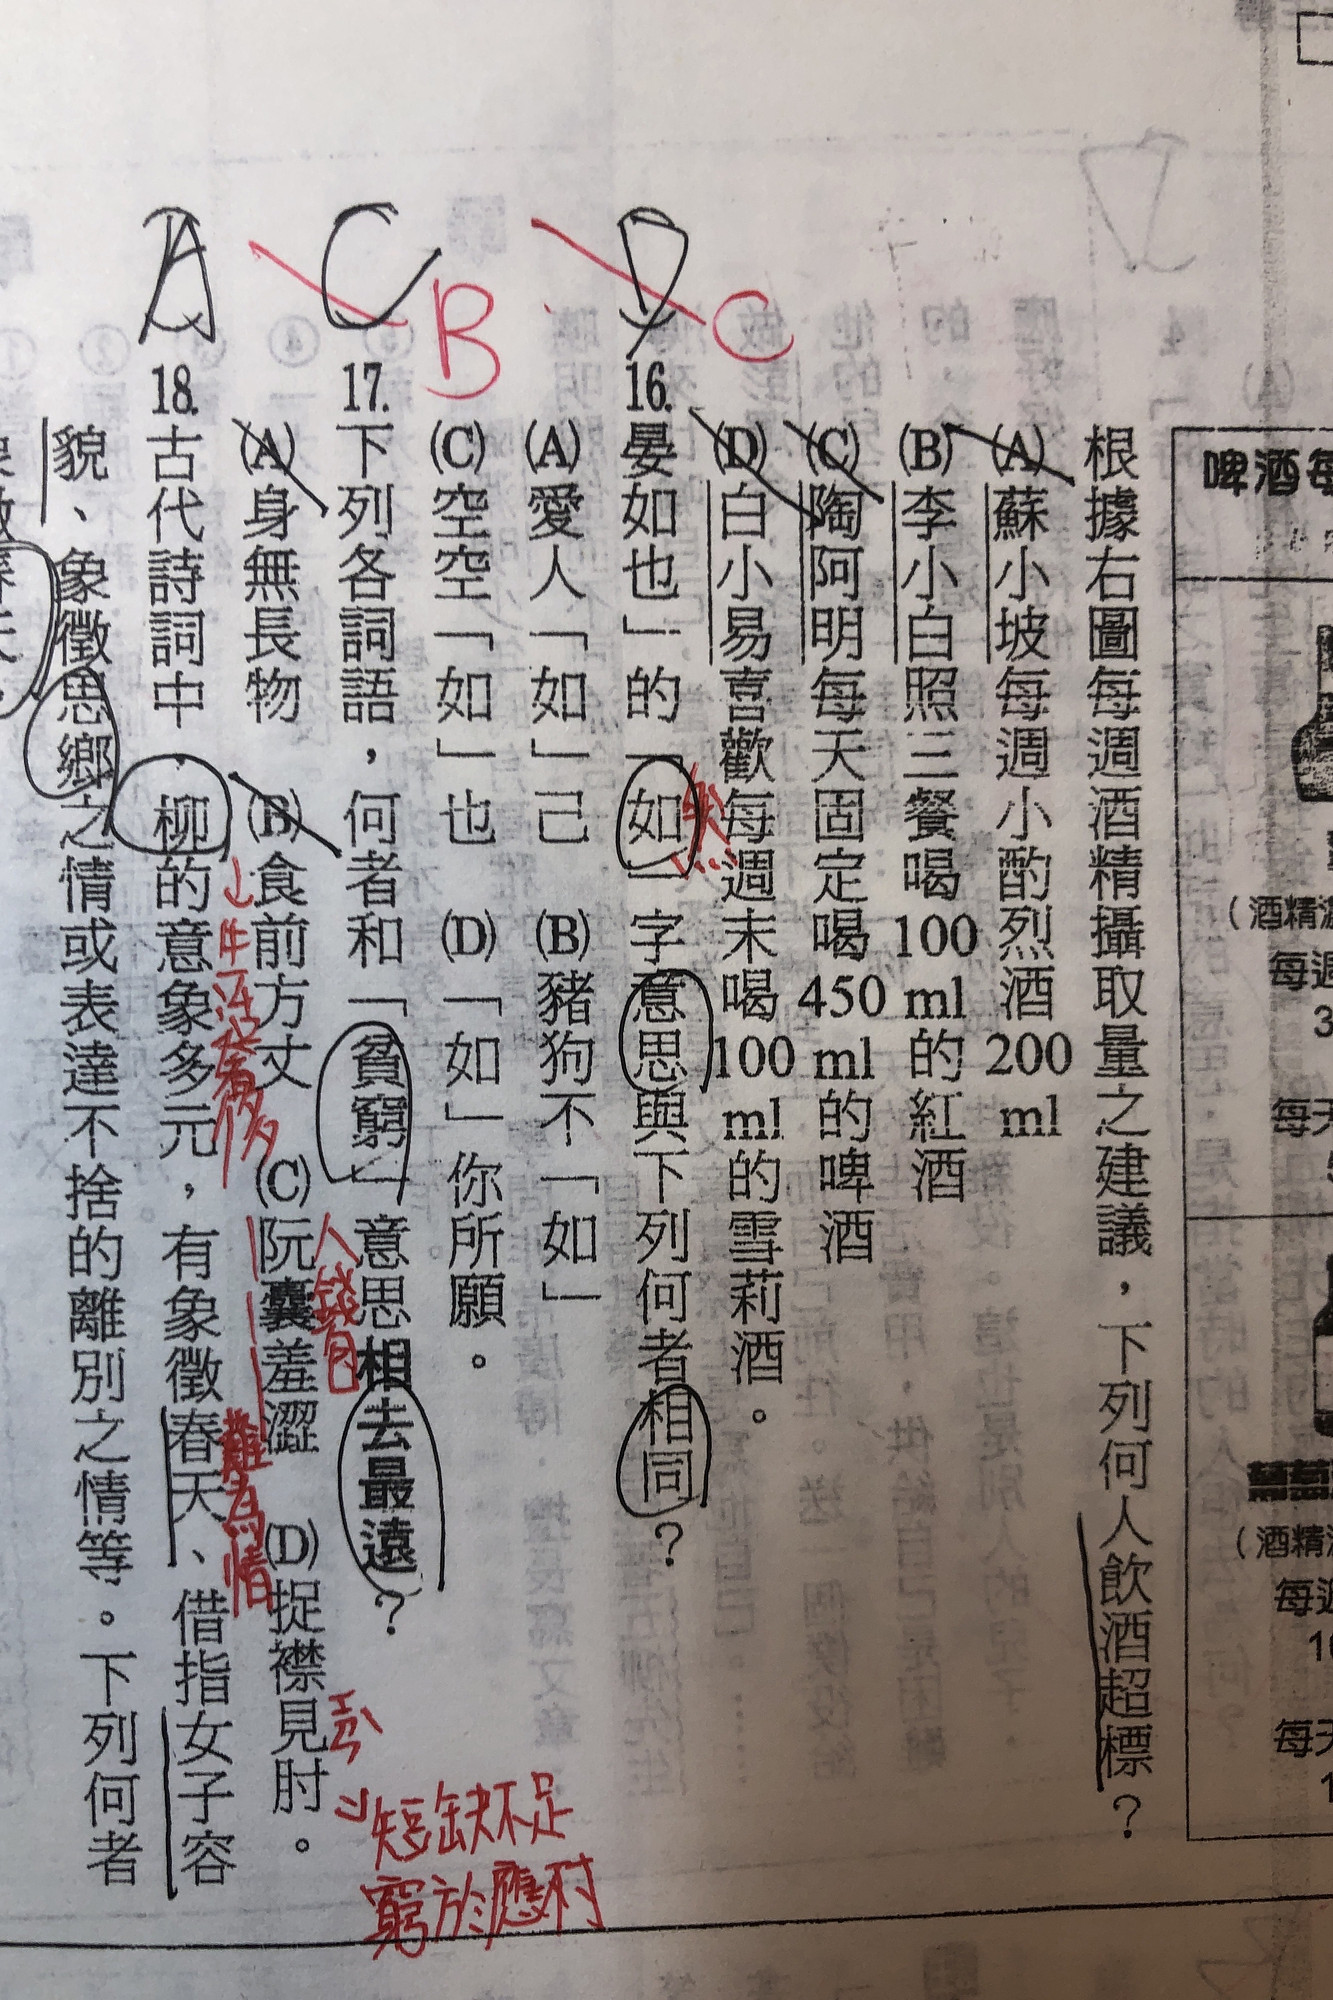 啤酒每
(酒精濃
每週
3
每天
5
葡萄
(酒精
每週
10
每天
1
根據右圖每週酒精攝取量之建議，下列何人飲酒超標？
(A)蘇小坡每週小酌烈酒200 ml
(B)李小白照三餐喝100 ml的紅酒
(C)陶阿明每天固定喝450 ml的啤酒
(D)白小易喜歡每週末喝100 ml的雪莉酒。
D C
16.晏如也」的「如」字意思與下列何者相同？
然
(A)愛人「如」己 (B)豬狗不「如」
(C)空空「如」也 (D)「如」你所願。
C B
17.下列各詞語，何者和「貧窮」意思相去最遠？
(A)身無長物 (B)食前方丈 (C)阮囊羞澀 (D)捉襟見肘。
生活奢侈
人 錢包
難為情
短缺不足
窮於應付
A
18.古代詩詞中，柳的意象多元，有象徵春天、借指女子容
貌、象徵思鄉之情或表達不捨的離別之情等。下列何者